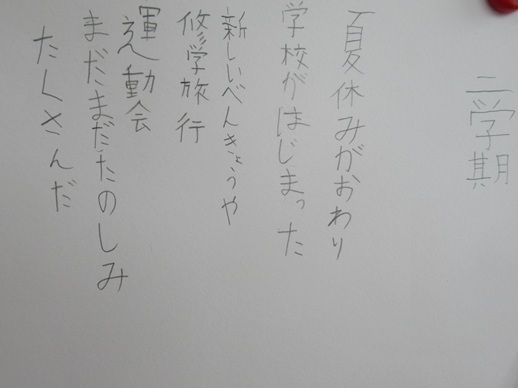 二学期
夏休みがおわり
学校がはじまった
新しいべんきょうや
修学旅行
運動会
まだまだたのしみ
たくさんだ